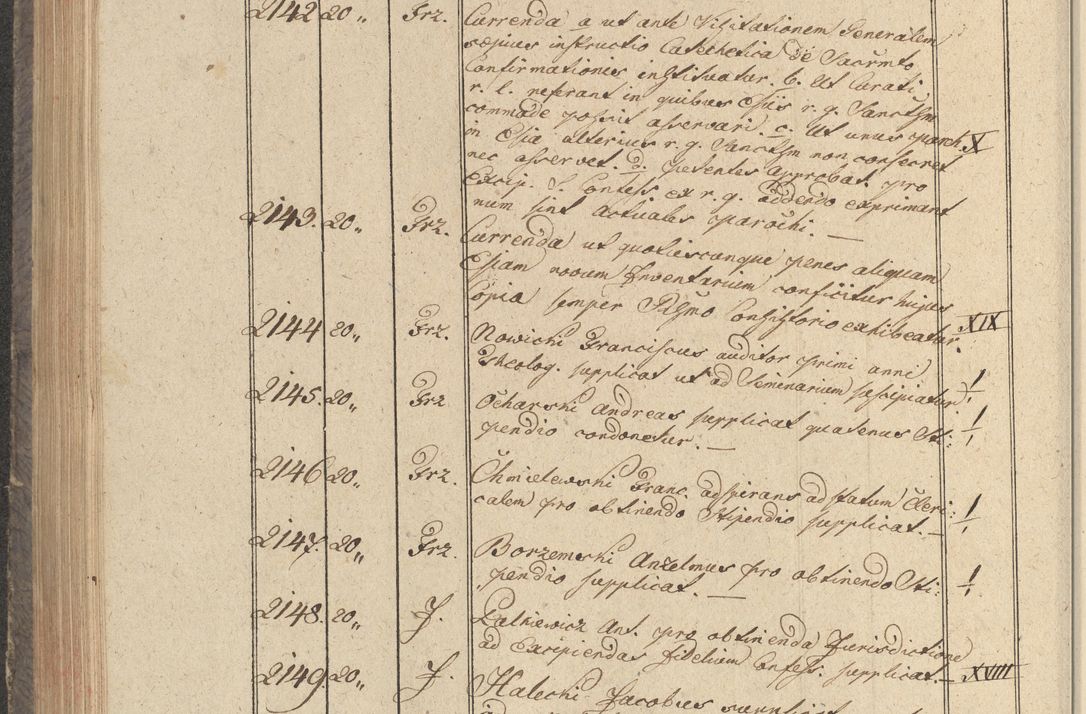 2142 20 „ Frz. Currenda a ut ante Visitationem Generalem
sæpius instructio Catechetica de Sacrmto
Confirmationis instituatur. b. Ut Curati
r. l. referant in quibus Eccliis r. g. Sanctssm
commode possit asservari. c. Ut unus paroch X
in Ecclia alterius r. g. Sanctssm non consecret
nec asservet. d. petentes approbat. pro
Excip. S. Confess ex r. g. addendo exprimant
num sint actuales parochi. —
2143. 20 „ Frz. Currenda ut quotiescunque penes aliquam
Eccliam novum Inventarium conficitur hujus
Copia semper Pssmo Consistorio exhibeatur. XIX
2144 20 „ Frz. Nowicki Franciscus auditor primi anni
Theolog. supplicat ut ad Seminarium suscipiatur. /.
2145. 20 „ Frz Ocharski Andreas supplicat quatenus Sti: /.
pendio condonetur. —
2146 20 „ Frz. Chmielewski Franc. adspirans ad statum Cleri:
calem pro obtinendo Stipendio supplicat. — /.
2147. 20 „ Frz. Borzemski Anzelmus pro obtinendo Sti: /.
pendio supplicat. —
2148. 20 „ J. Latkiewicz Ant. pro obtinenda Jurisdictione
ad Excipiendas fidelium Confess: supplicat. — XVIII
2149. 20 „ J. Halecki Jacobus supplicat